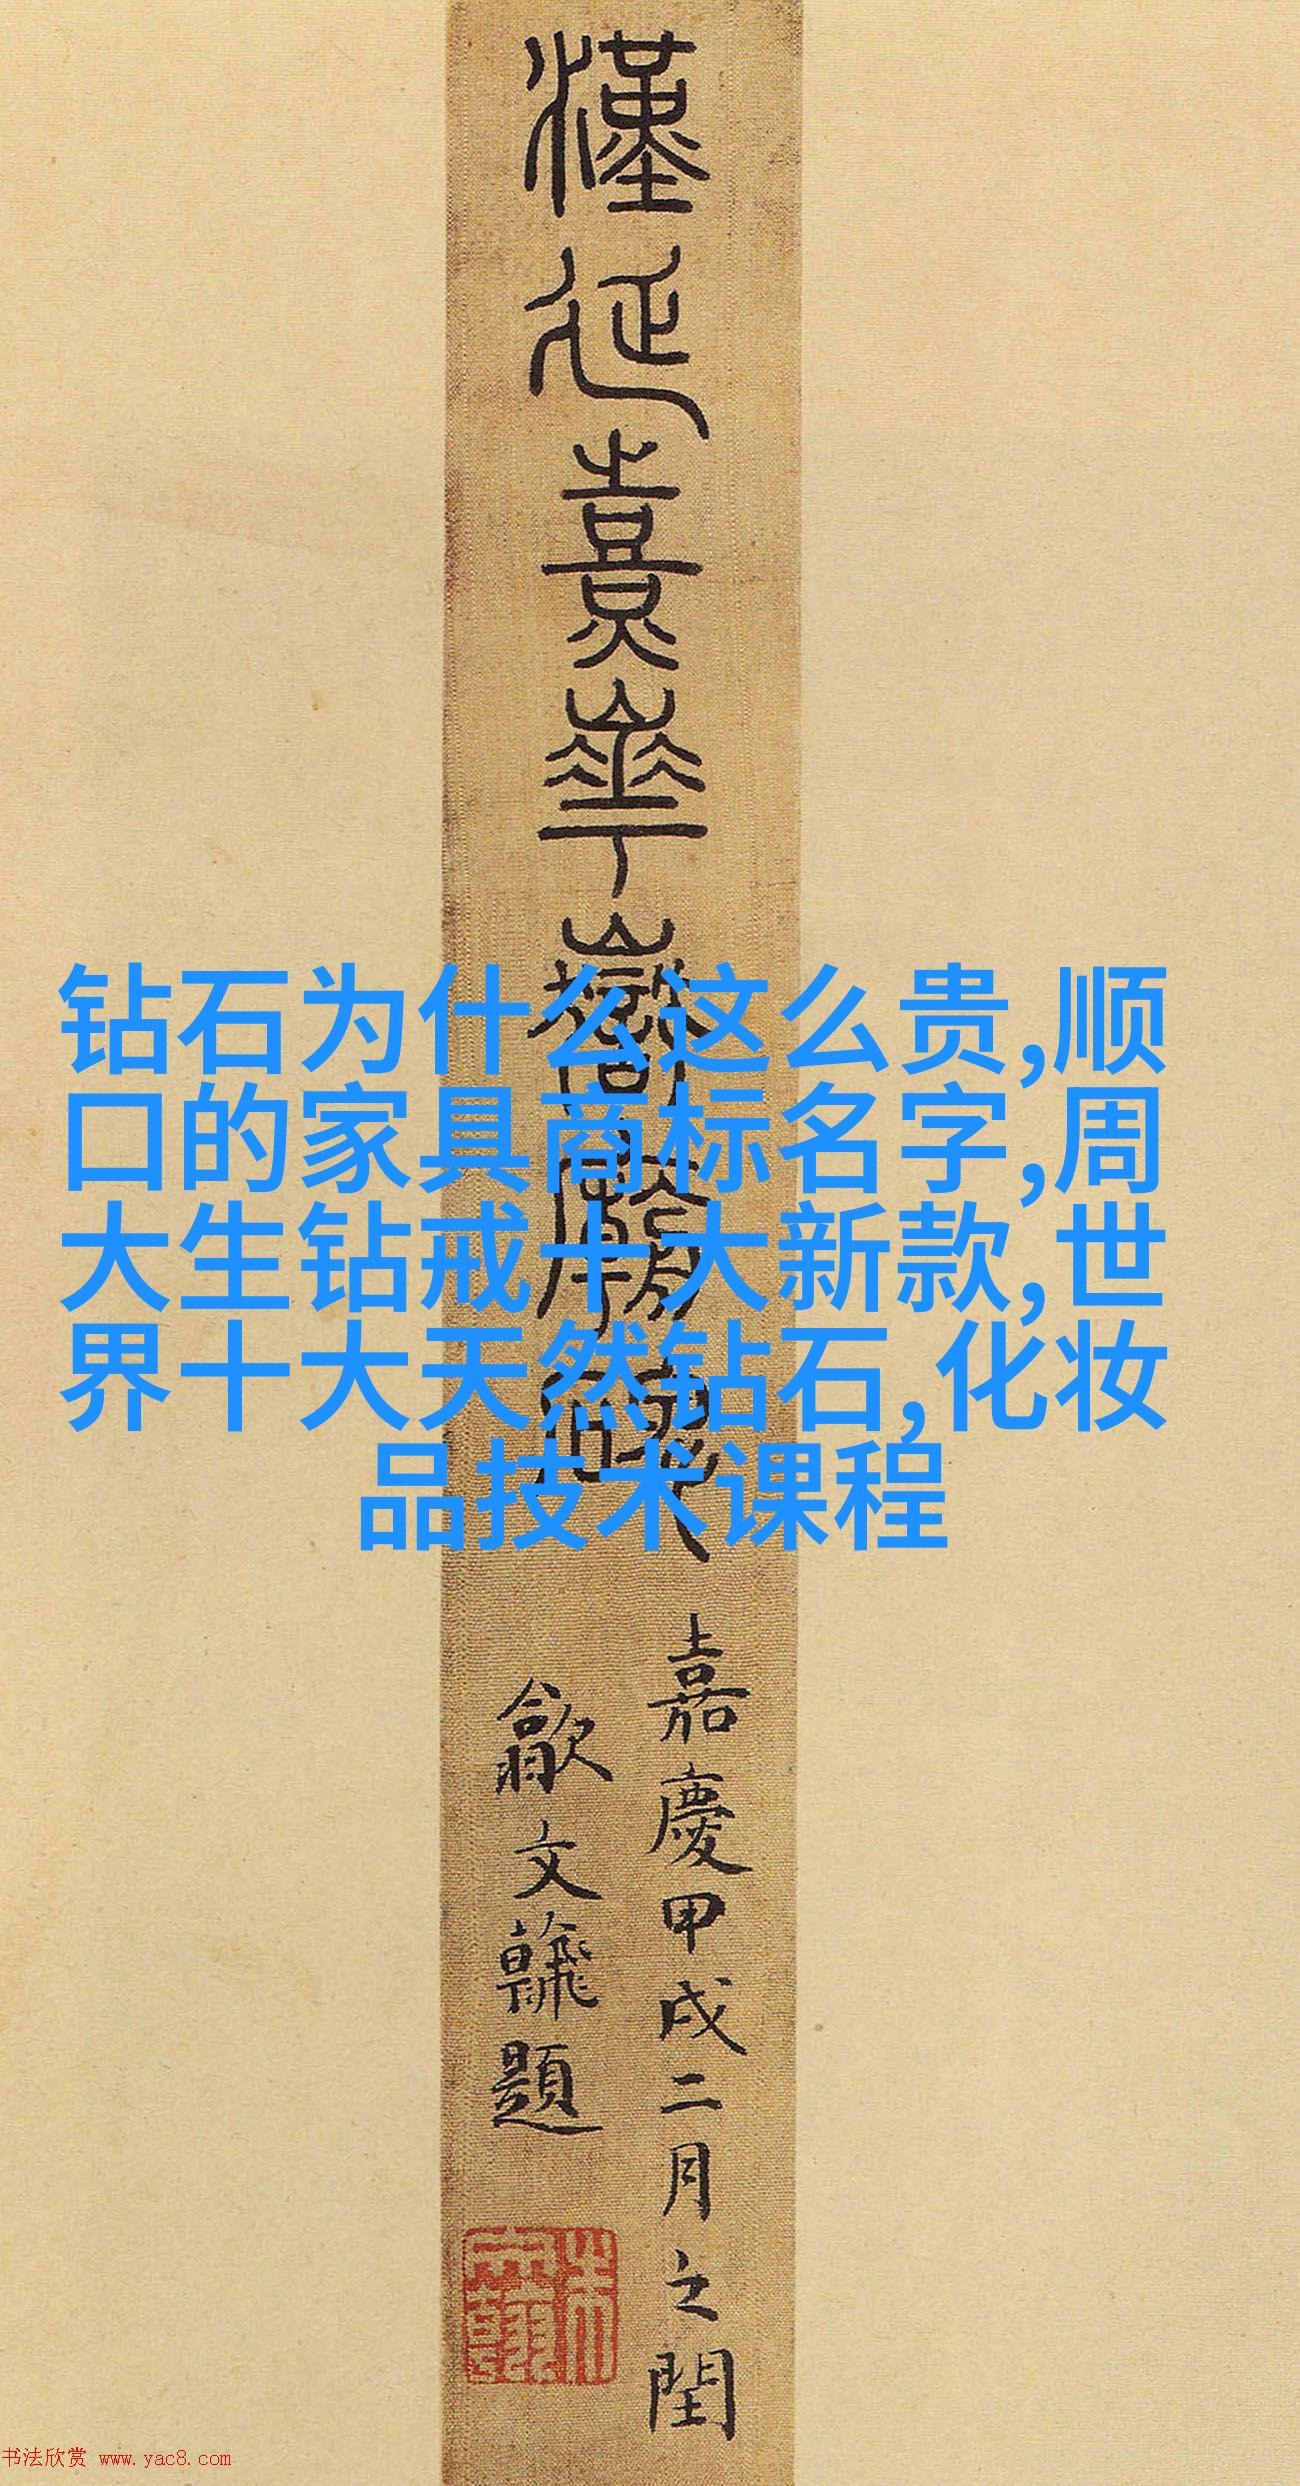 漢延熹華嶽廟碑
嘉慶甲戌二月之閏
歙文𩙥題
钻石为什么这么贵,顺
口的家具商标名字,周
大生钻戒十大新款,世
界十大天然钻石,化妆
品技术课程
书法欣赏 www.yac8.com